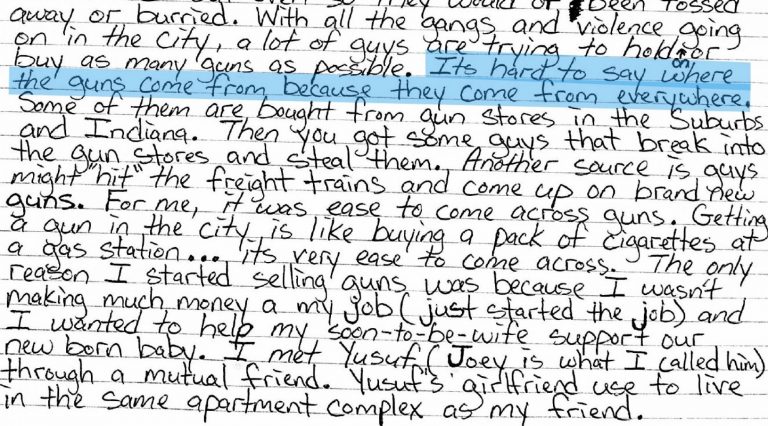 away or burried. With all the gangs and violence going
on in the city, a lot of guys are trying to hold on or
buy as many guns as possible. Its hard to say where
the guns come from because they come from everywhere.
Some of them are bought from gun stores in the Suburbs
and Indiana. Then you got some guys that break into
the gun stores and steal them. Another source is guys
might "hit" the freight trains and come up on brand new
guns. For me, it was ease to come across guns. Getting
a gun in the city is like buying a pack of cigarettes at
a gas station... its very ease to come across. The only
reason I started selling guns was because I wasn't
making much money a my job (just started the job) and
I wanted to help my soon-to-be-wife support our
new born baby. I met Yusuf (Joey is what I called him)
through a mutual friend. Yusuf's girlfriend use to live
in the same apartment complex as my friend.